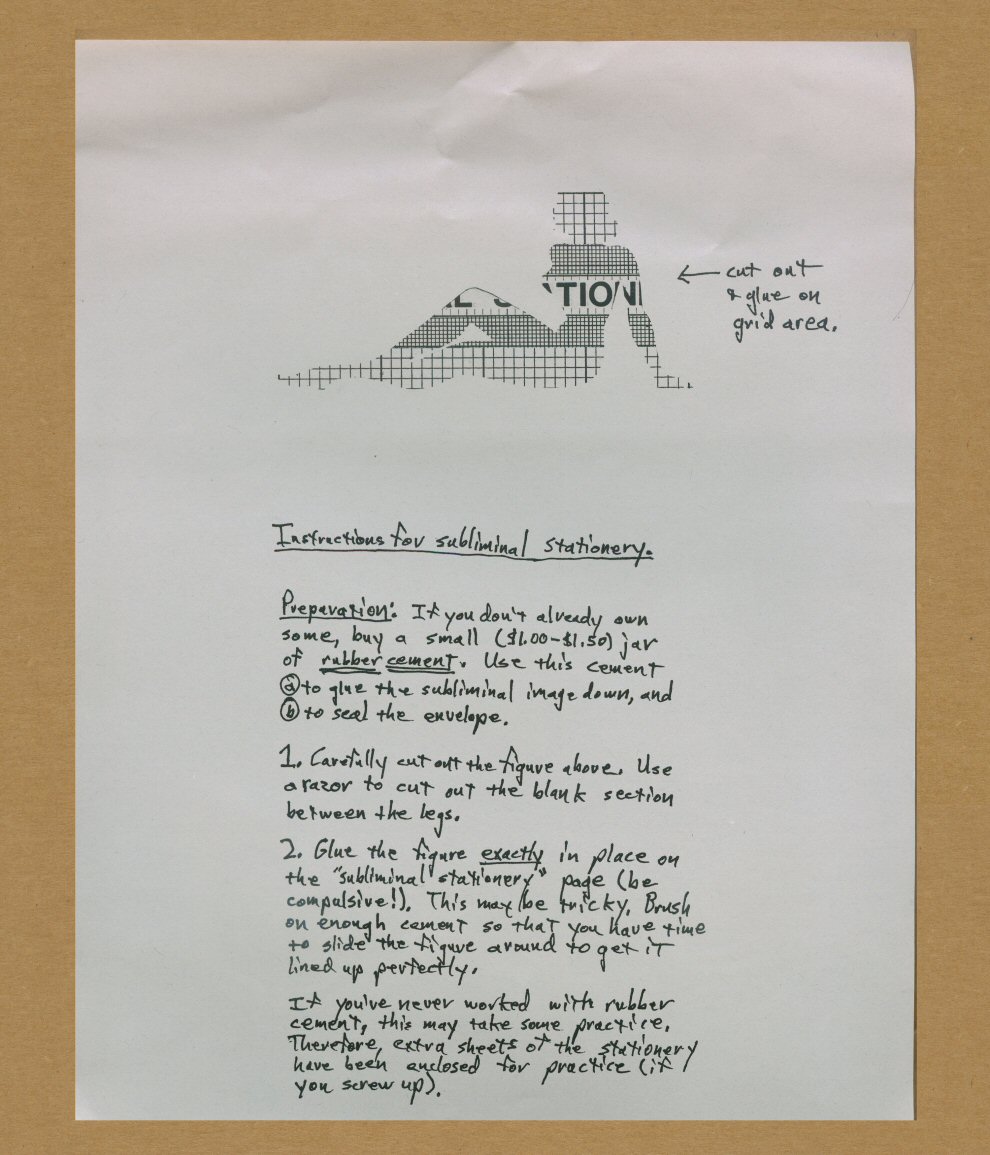 L S TION
← cut out
& glue on
grid area.
Instructions for subliminal stationery.
Preparation: If you don't already own
some, buy a small ($1.00-$1.50) jar
of rubber cement. Use this cement
ⓐ to glue the subliminal image down, and
ⓑ to seal the envelope.
1. Carefully cut out the figure above. Use
a razor to cut out the blank section
between the legs.
2. Glue the figure exactly in place on
the "subliminal stationery" page (be
compulsive!). This may be tricky. Brush
on enough cement so that you have time
to slide the figure around to get it
lined up perfectly.
If you've never worked with rubber
cement, this may take some practice.
Therefore, extra sheets of the stationery
have been enclosed for practice (if
you screw up).